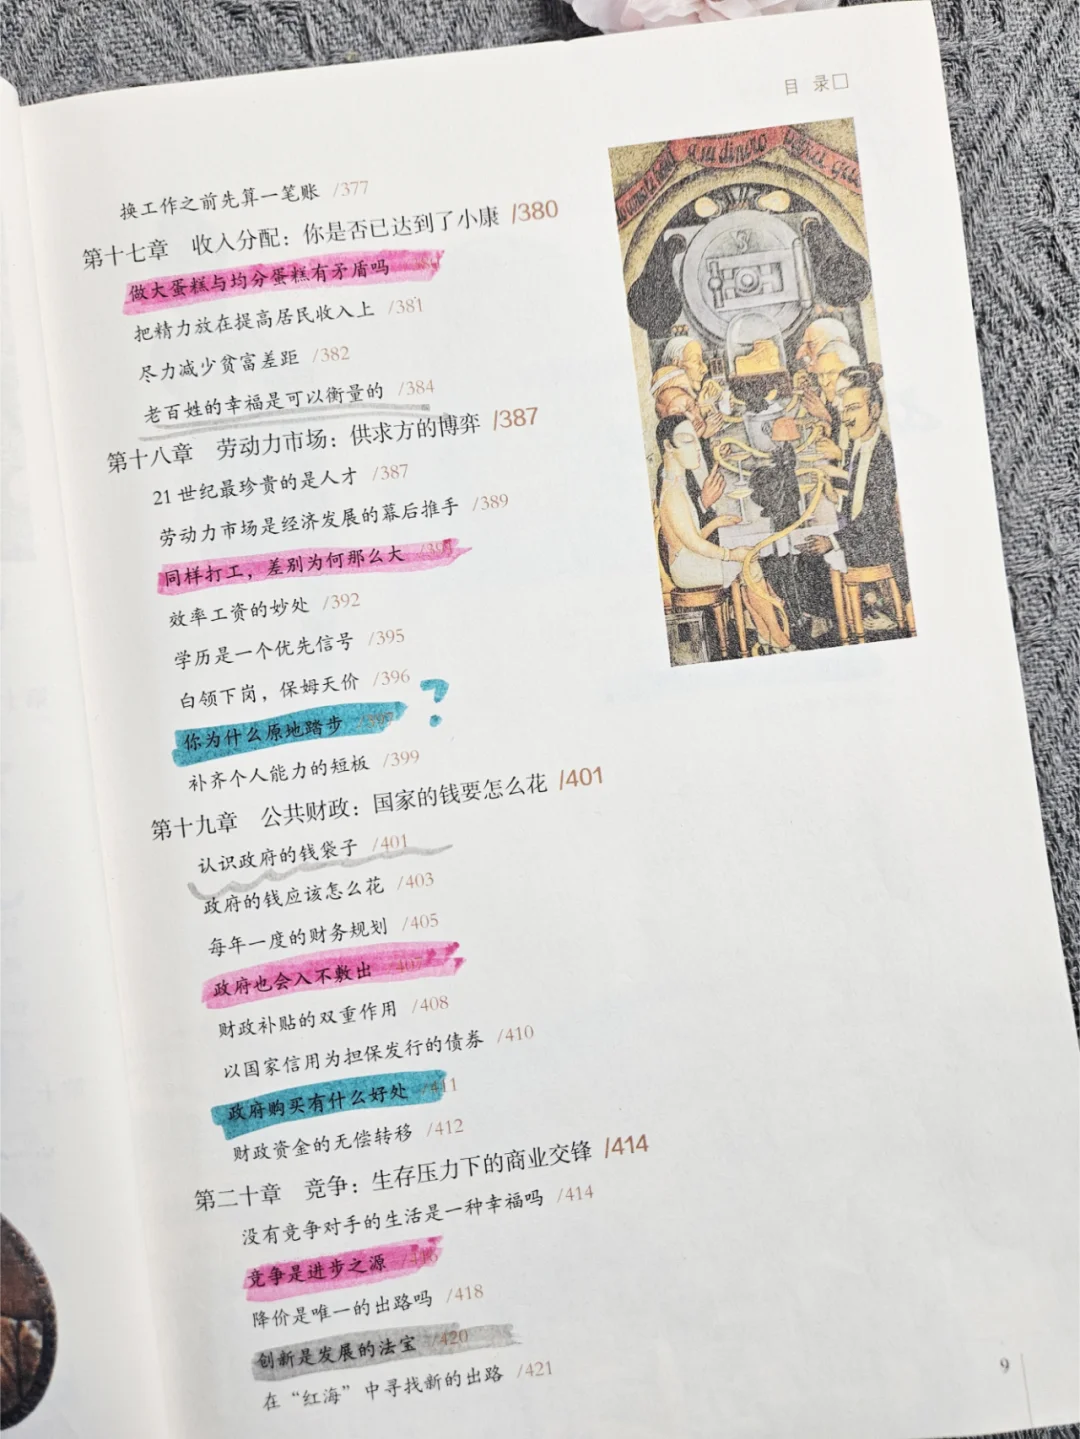 目 录□
换工作之前先算一笔账 /377
第十七章 收入分配：你是否已达到了小康 /380
做大蛋糕与均分蛋糕有矛盾吗
把精力放在提高居民收入上 /381
尽力减少贫富差距 /382
老百姓的幸福是可以衡量的 /384
第十八章 劳动力市场：供求方的博弈 /387
21 世纪最珍贵的是人才 /387
劳动力市场是经济发展的幕后推手 /389
同样打工，差别为何那么大
效率工资的妙处 /392
学历是一个优先信号 /395
白领下岗，保姆天价 /396
你为什么原地踏步 /397
?
补齐个人能力的短板 /399
第十九章 公共财政：国家的钱要怎么花 /401
认识政府的钱袋子 /401
政府的钱应该怎么花 /403
每年一度的财务规划 /405
政府也会入不敷出 /407
财政补贴的双重作用 /408
以国家信用为担保发行的债券 /410
政府购买有什么好处 /411
财政资金的无偿转移 /412
第二十章 竞争：生存压力下的商业交锋 /414
没有竞争对手的生活是一种幸福吗 /414
竞争是进步之源 /416
降价是唯一的出路吗 /418
创新是发展的法宝 /420
在“红海”中寻找新的出路 /421
9
su dinero